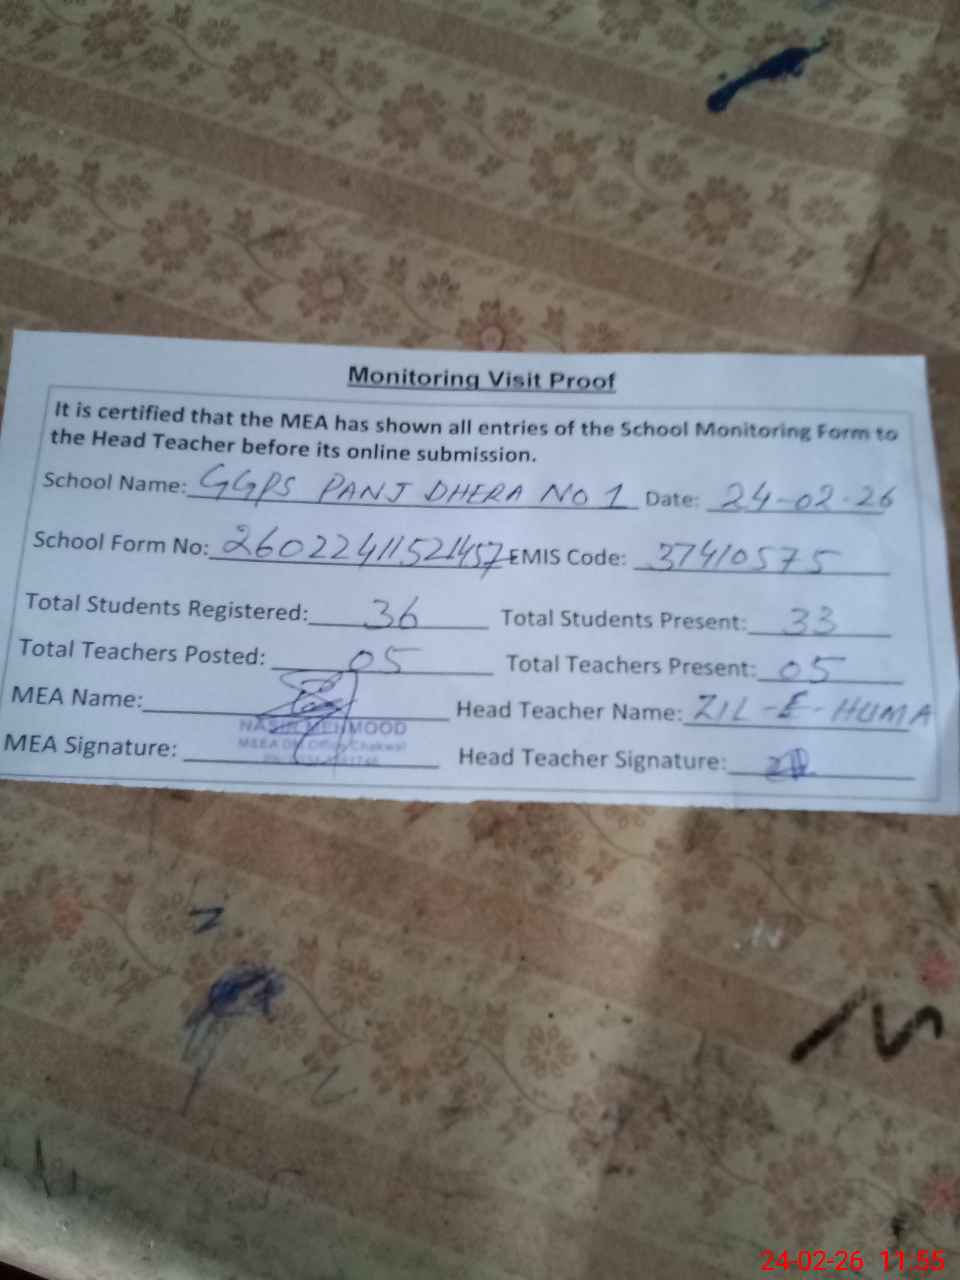 Monitoring Visit Proof
It is certified that the MEA has shown all entries of the School Monitoring Form to
the Head Teacher before its online submission.
School Name: GGPS PANJ DHERA NO 1 Date: 24-02-26
School Form No: 26022411521457 EMIS Code: 37410575
Total Students Registered: 36 Total Students Present: 33
Total Teachers Posted: 05 Total Teachers Present: 05
MEA Name: Head Teacher Name: ZIL-E-HUMA
NASIR MEHMOOD
MEA Signature: Chakwal Head Teacher Signature:
24-02-26 11:55